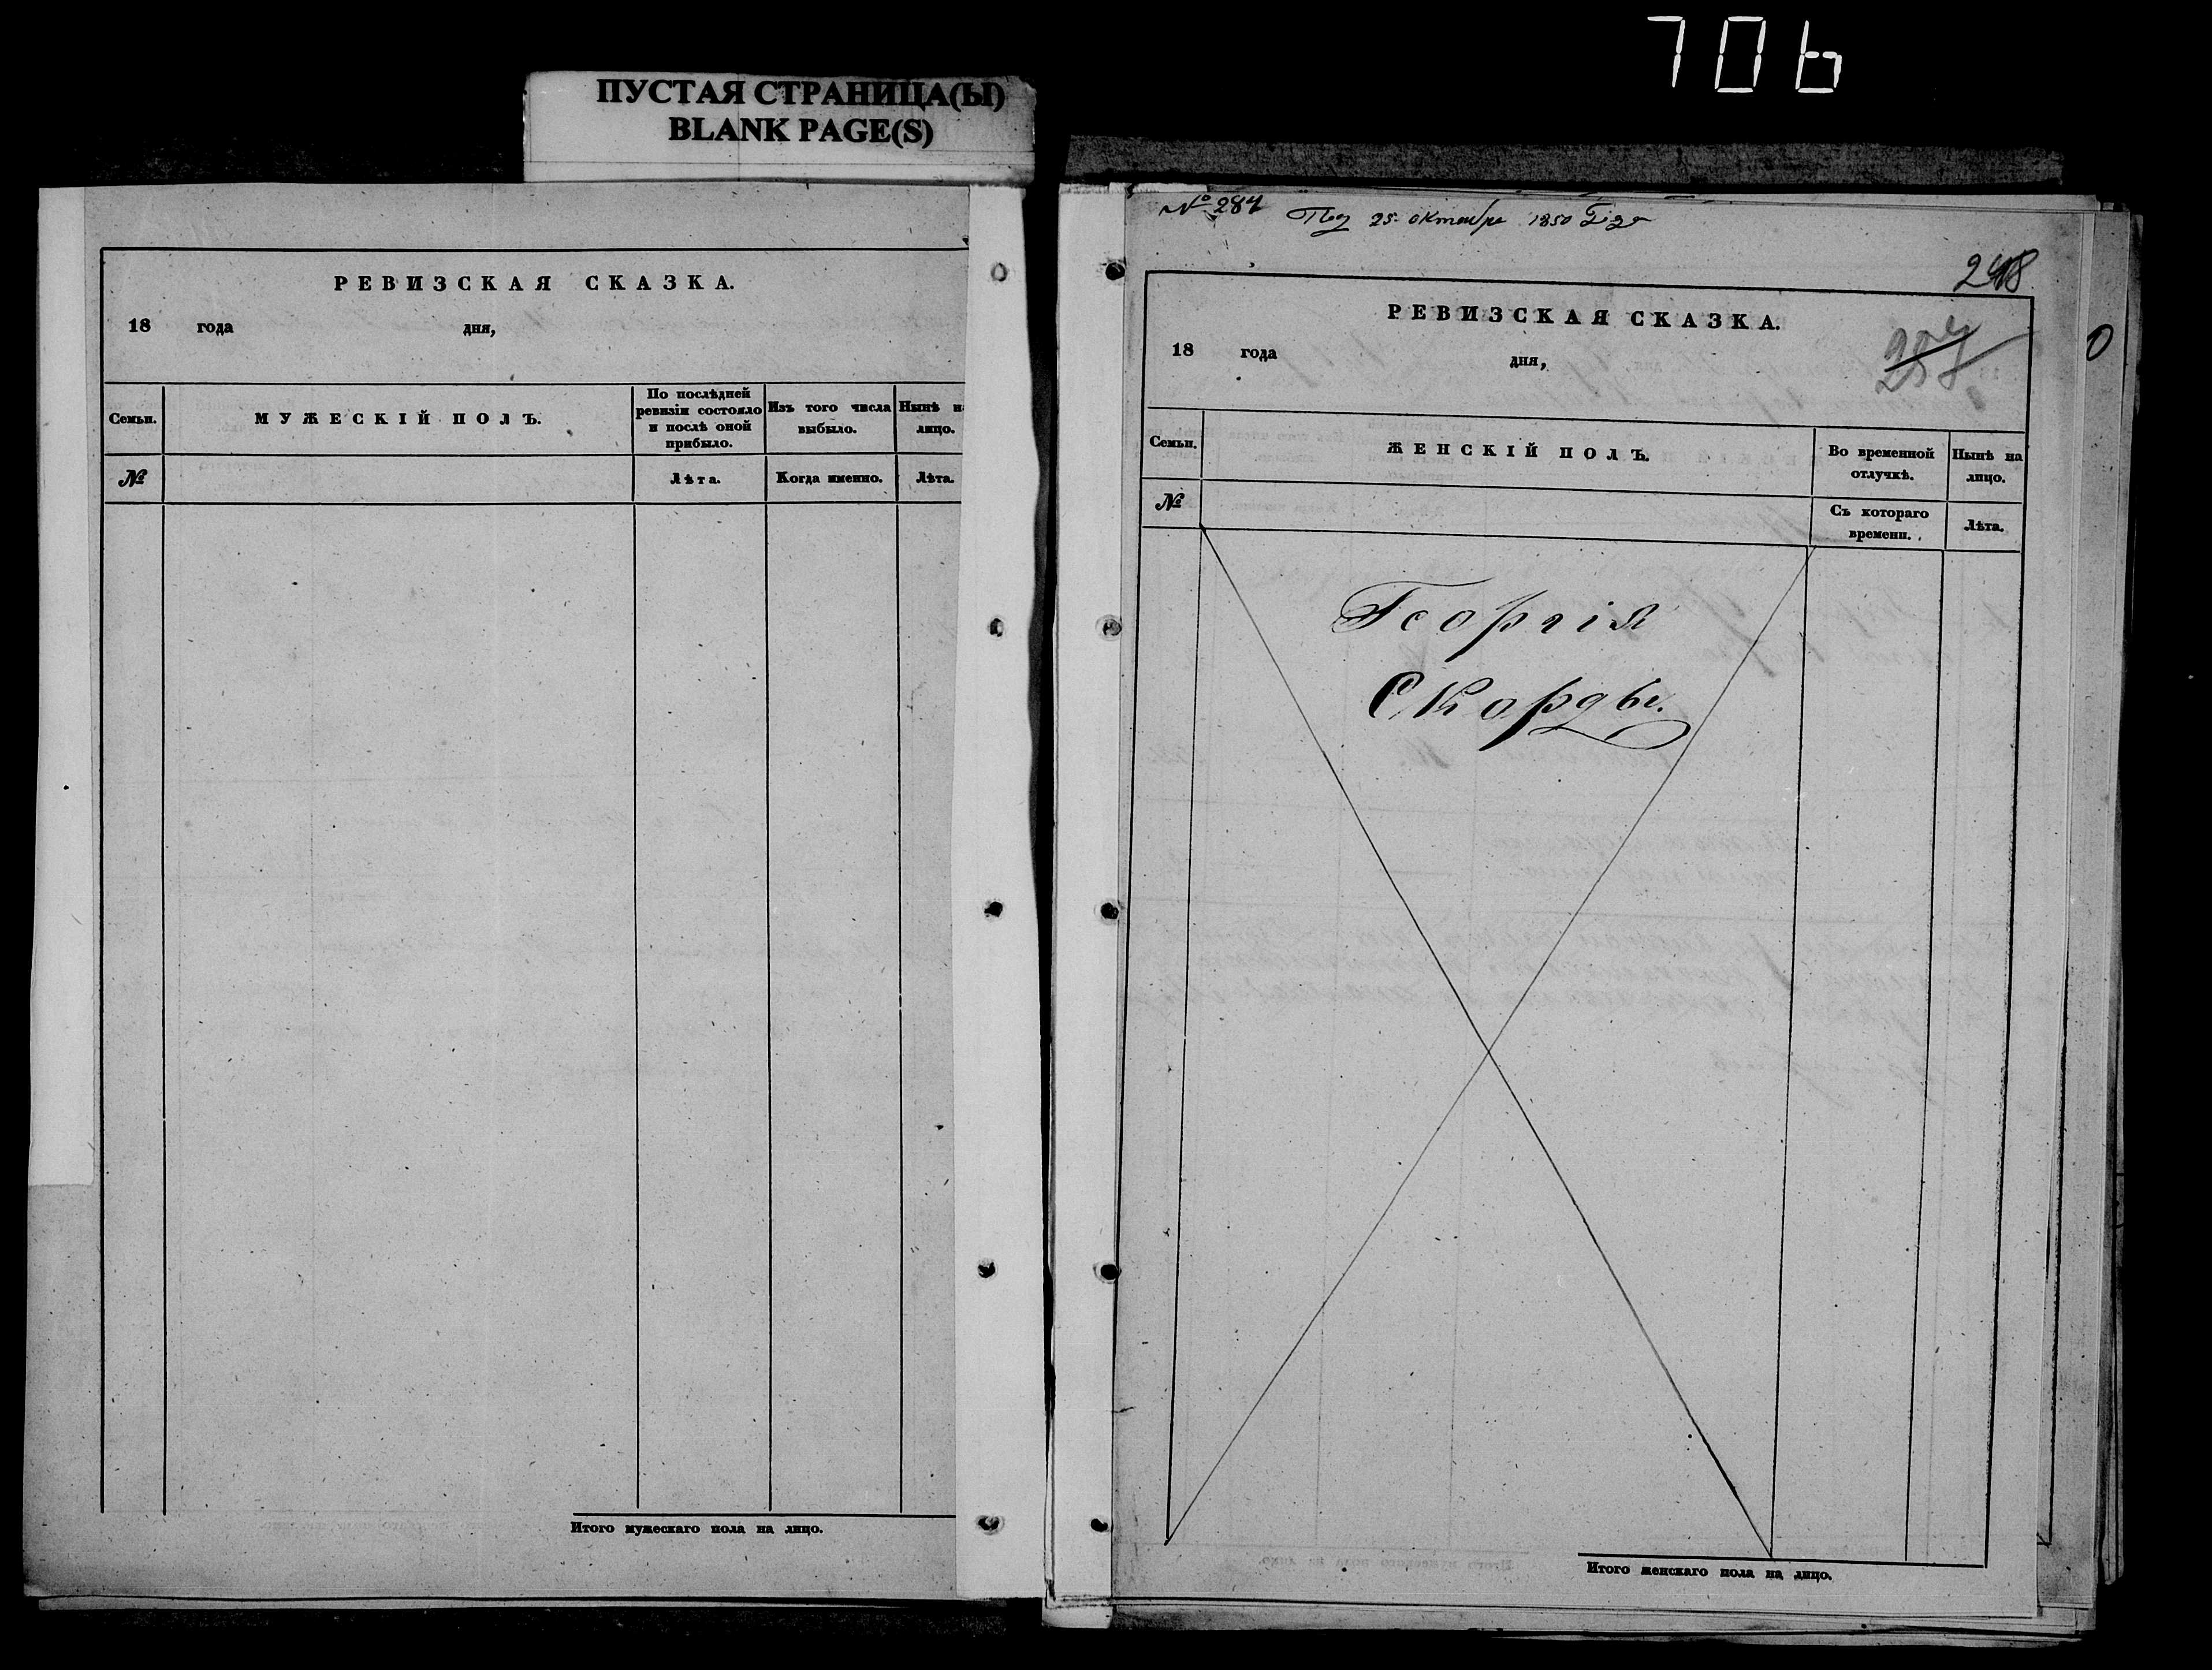 706
ПУСТАЯ СТРАНИЦА(Ы)
BLANK PAGE(S)
РЕВИЗСКАЯ СКАЗКА.
18 года дня,
Семьи.
МУЖЕСКІЙ ПОЛЪ.
По послѣдней
ревизіи состояло
и послѣ оной
прибыло.
Изъ того числа
выбыло.
Нынѣ н
лицо.
№
Лѣта.
Когда именно.
Лѣта.
Итого мужескаго пола на лицо.
№ 284 25 октября 1850
248
РЕВИЗСКАЯ СКАЗКА.
18 года дня,
Семьи.
ЖЕНСКІЙ ПОЛЪ.
Во временной
отлучкѣ.
Нынѣ на
лицо.
№
Съ котораго
времени.
Лѣта.
Георгія
Скорды.
Итого женскаго пола на лицо.
0